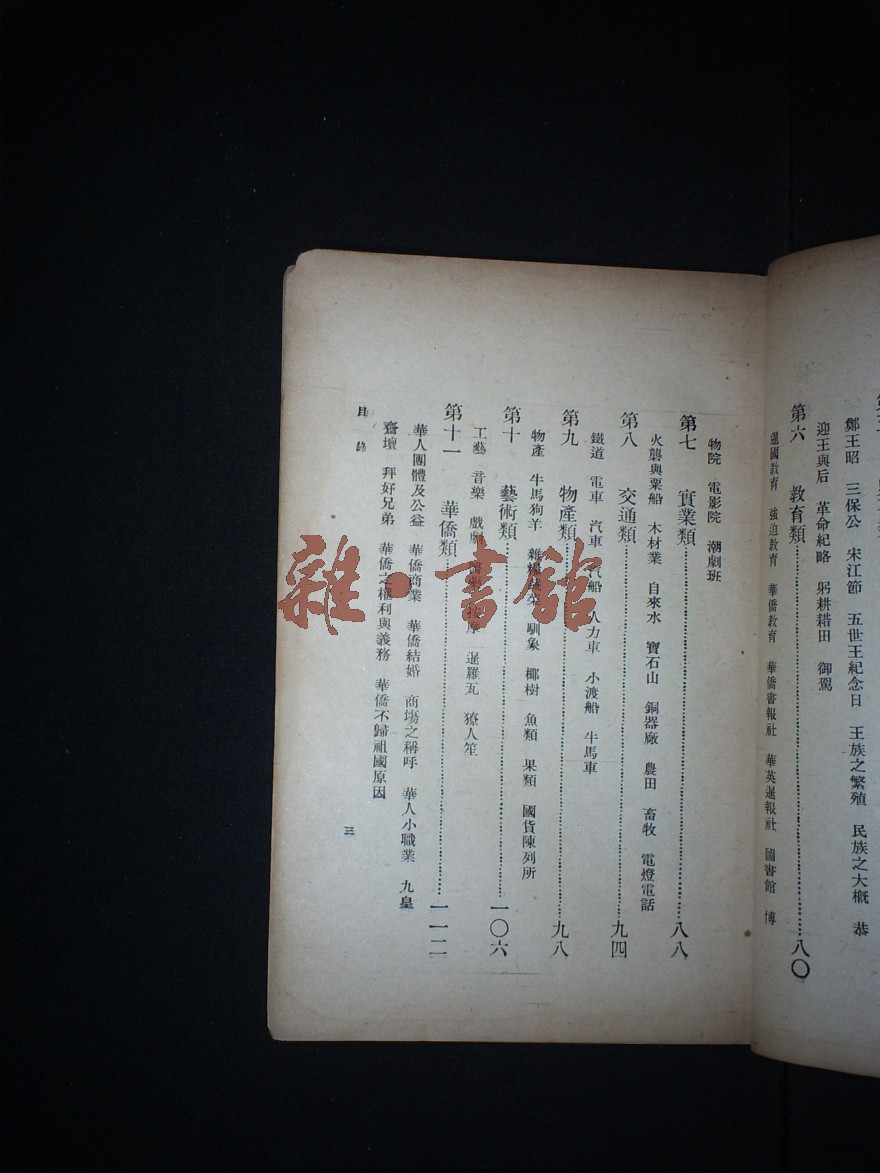 鄭王昭 三保公 宋江節 五世王紀念日 王族之繁殖 民族之大概 恭
迎王與后 革命紀略 躬耕耤田 御駕
第六 教育類……八〇
暹國教育 強迫教育 華僑教育 華僑書報社 華英暹報社 圖書館 博
物院 電影院 潮劇班
第七 實業類……八八
火礱與粟船 木材業 自來水 寶石山 銅器廠 農田 畜牧 電燈電話
第八 交通類……九四
鐵道 電車 汽車 汽船 人力車 小渡船 牛馬車
第九 物產類……九八
物產 牛馬狗羊 雜糧蔬菜 馴象 椰樹 魚類 果類 國貨陳列所
第十 藝術類……一〇六
工藝 音樂 戲劇 按摩 暹羅瓦 獠人笙
第十一 華僑類……一一二
華人團體及公益 華僑商業 華僑結婚 商塲之稱呼 華人小職業 九皇
齋壇 拜好兄弟 華僑之權利與義務 華僑不歸祖國原因
目錄 三
雜·書館